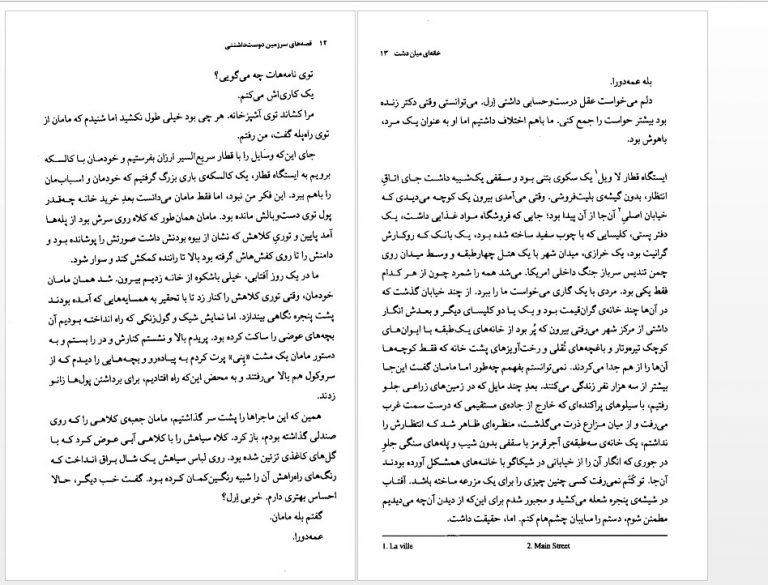 ۱۲ قصه‌های سرزمین دوست‌داشتنی
توی نامه‌هات چه می‌گویی؟
یک کاری‌اش می‌کنم.
مرا کشاند توی آشپزخانه. هر چی بود خیلی طول نکشید اما شنیدم که مامان از
توی راه‌پله گفت، من رفتم.
جای این‌که وسایل را با قطار سریع‌السیر ارزان بفرستیم و خودمان با کالسکه
برویم به ایستگاه قطار، یک کالسکه‌ی باری بزرگ گرفتیم که خودمان و اسباب‌مان
را باهم ببرد. این فکر من نبود، اما فقط مامان می‌دانست بعدِ خرید خانه چه‌قدر
پول توی دست‌وبالش مانده بود. مامان همان‌طور که کلاه روی سرش بود از پله‌ها
آمد پایین و توریِ کلاهش که نشان از بیوه بودنش داشت صورتش را پوشانده بود و
دامنش را تا روی کفش‌هاش گرفته بود بالا تا راننده کمکش کند و سوار شود.
ما در یک روز آفتابی، خیلی باشکوه از خانه زدیم بیرون. شد همان مامان
خودمان، وقتی توری کلاهش را کنار زد تا با تحقیر به همسایه‌هایی که آمده بودند
پشت پنجره نگاهی بیندازد. اما نمایش شیک و گول‌زنکی که راه انداخته بودیم آن
بچه‌های عوضی را ساکت کرده بود. پریدم بالا و نشستم کنارش و در را بستم و به
دستور مامان یک مشت «پِنی» پرت کردم به پیاده‌رو و بچه‌هایی را دیدم که از
سروکول هم بالا می‌رفتند و به محض این‌که راه افتادیم، برای برداشتن پول‌ها زانو
زدند.
همین که این ماجراها را پشت سر گذاشتیم، مامان جعبه‌ی کلاهی را که روی
صندلی گذاشته بودم، باز کرد. کلاه سیاهش را با کلاهی آبی عوض کرد که با
گل‌های کاغذی تزئین شده بود. روی لباس سیاهش یک شال براق انداخت که
رنگ‌های راه‌راهش آن را شبیه رنگین‌کمان کرده بود. گفت خب دیگر، حالا
احساس بهتری دارم. خوبی اِرل؟
گفتم بله مامان.
عمه‌دورا.
خانه‌ای میان دشت ۱۳
بله عمه‌دورا.
دلم می‌خواست عقل درست‌وحسابی داشتی اِرل. می‌توانستی وقتی دکتر زنده
بود بیشتر حواست را جمع کنی. ما باهم اختلاف داشتیم اما او به عنوان یک مرد،
باهوش بود.
ایستگاه قطار لا ویل۱ یک سکوی بتنی بود و سقفی یک‌شیبه داشت جای اتاقِ
انتظار، بدون گیشه‌ی بلیت‌فروشی. وقتی می‌آمدی بیرون یک کوچه می‌دیدی که
خیابان اصلی۲ آن‌جا از آن پیدا بود؛ جایی که فروشگاه مواد غذایی داشت، یک
دفتر پستی، کلیسایی که با چوب سفید ساخته شده بود، یک بانک که روکارش
گرانیت بود، یک خرازی، میدان شهر با یک هتل چهارطبقه و وسط میدان روی
چمن تندیس سرباز جنگ داخلی امریکا. می‌شد همه را شمرد چون از هر کدام
فقط یکی بود. مردی با یک گاری می‌خواست ما را ببرد. از چند خیابان گذشت که
در آن‌ها چند خانه‌ی گران‌قیمت بود و یک یا دو کلیسای دیگر و بعدش انگار
داشتی از مرکز شهر می‌رفتی بیرون که پُر بود از خانه‌های یک‌طبقه با ایوان‌های
کوچک تیره‌وتار و باغچه‌های نُقلی و رخت‌آویزهای پشت خانه که فقط کوچه‌ها
آن‌ها را از هم جدا می‌کردند. نمی‌توانستم بفهمم چه‌طور اما مامان گفت این‌جا
بیشتر از سه هزار نفر زندگی می‌کنند. بعدِ چند مایل که در زمین‌های زراعی جلو
رفتیم، با سیلوهای پراکنده‌ای که خارج از جاده‌ی مستقیمی که درست سمت غرب
می‌رفت و از میان مزارع ذرت می‌گذشت، منظره‌ای ظاهر شد که انتظارش را
نداشتم، یک خانه‌ی سه‌طبقه‌ی آجرقرمز با سقفی بدون شیب و پله‌های سنگی جلوِ
در جوری که انگار آن را از خیابانی در شیکاگو با خانه‌های همشکل آورده بودند
آن‌جا. تو کَتَم نمی‌رفت کسی چنین چیزی را برای یک مزرعه ساخته باشد. آفتاب
در شیشه‌ی پنجره شعله می‌کشید و مجبور شدم برای این‌که از دیدن آن‌چه می‌دیدیم
مطمئن شوم، دستم را سایبان چشم‌هام کنم. اما، حقیقت داشت.
1. La ville 2. Main Street